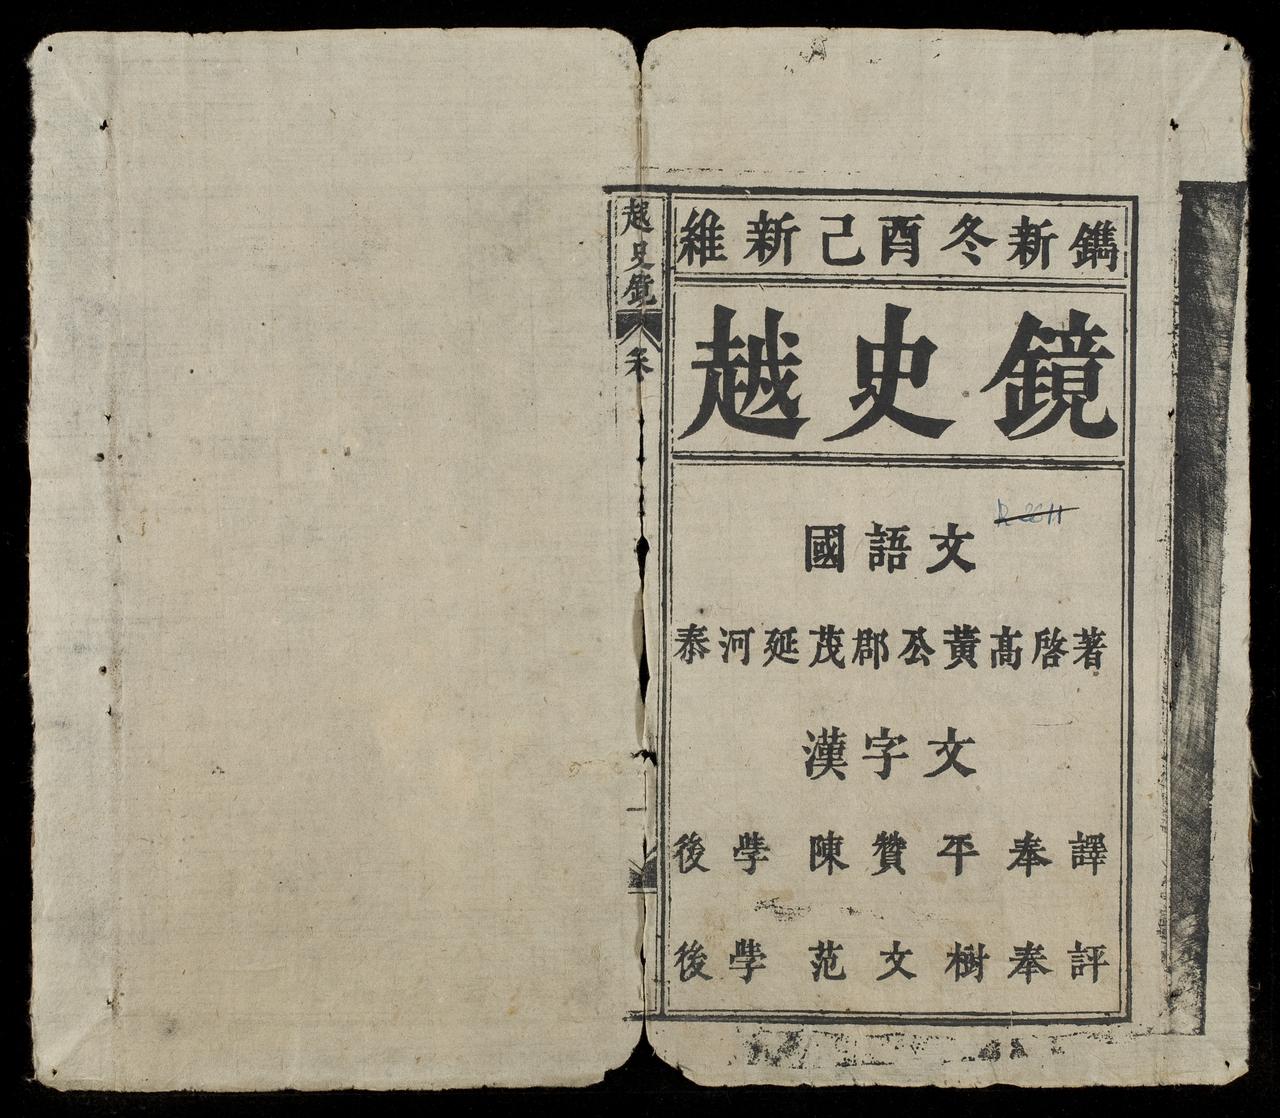 維新己酉冬新鐫
越史鏡
國語文
泰河延茂郡公黃高啓著
漢字文
後學陳贊平奉譯
後學范文樹奉評
越史鏡
一